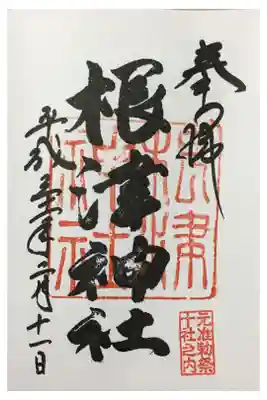 奉拝
根津神社
根津神社
平成 年 月十一日
元准勅祭
十社之内